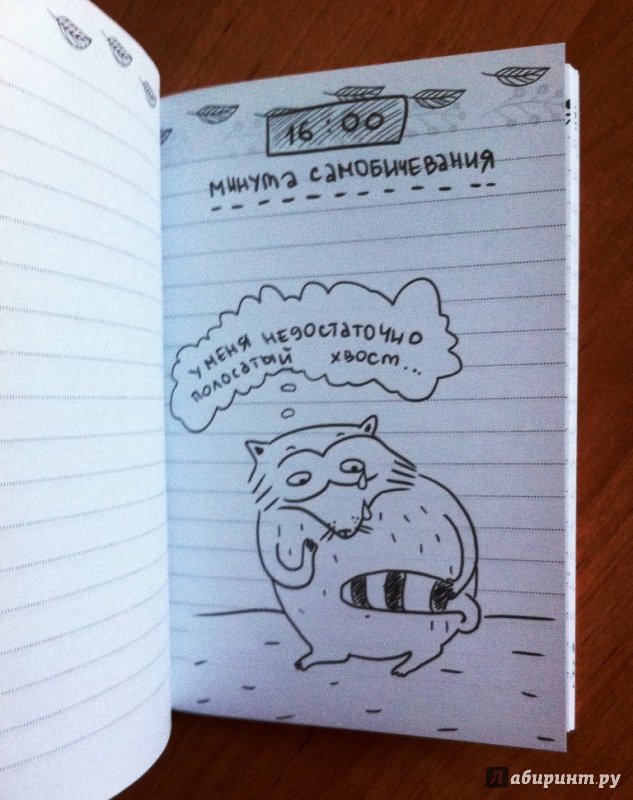 16:00
минута самобичевания
у меня недостаточно
полосатый хвост...
Лабиринт.ру